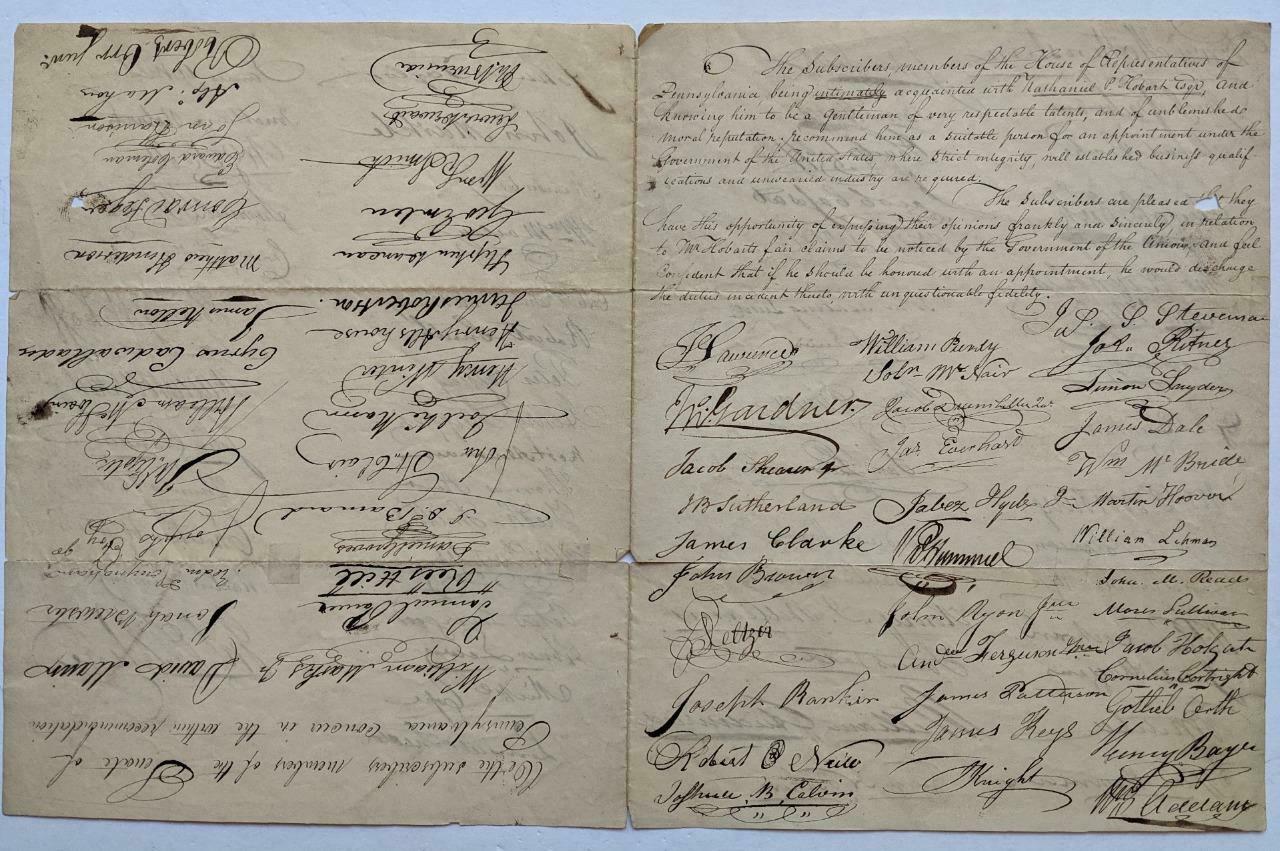 The Subscribers, members of the House of Representatives of
Pennsylvania, being intimately acquainted with Nathaniel P. Hobart Esqr, and
knowing him to be a Gentleman of very respectable talents, and of unblemished
moral reputation. Recommend him as a suitable person for an appointment under the
Government of the United States, where strict integrity, well established business qualif
ications and unwearied industry are required.
The Subscribers are pleased they
have this opportunity of expressing their opinions frankly and sincerely in relation
to Mr Hobarts fair claims to be noticed by the Government of the Union, and feel
Confident that if he should be honoured with an appointment, he would discharge
the duties incident thereto, with unquestionable fidelity.
J Lawrence
Wm. Gardner
Jacob Shearer
JB Sutherland
James Clarke
John Brown
Joseph Rankin
Robert
Joshua B. Calvin
William Bendy
Soln McNair
Jacob
Jas Everhard
Jabez Hyde Jr
John Ryon Junr
Andw Ferguson
James Patterson
James Keys
Knight
Jas. S. Stevenson
Jos. Ritner
Simon Snyder
James Dale
Wm McBride
Martin Hoover
William Lehman
John. M. Read
Moses Sullivan
Jacob
Cornelius Cortright
Gottlieb
Henry
Wm Addams
We the subscribers members of the Senate of
Pennsylvania concur in the within recommendation
William Marks Jr
David Mann
Samuel
Jonah Brewster
Rees Hill
Redm Conyngham
Daniel Groves
Joseph
I D Barnard
John St. Clair
William McIlvain
Henry Winter
Cyrus Cadwallader
Henry Allshouse
James Kelton
James Robertson
Matthew Henderson
Stephen Duncan
Conrad Feger
Geo Emlen
Edward Coleman
Wm R Smith
John Harrison
Alex Mahon
Robert Orr Junr